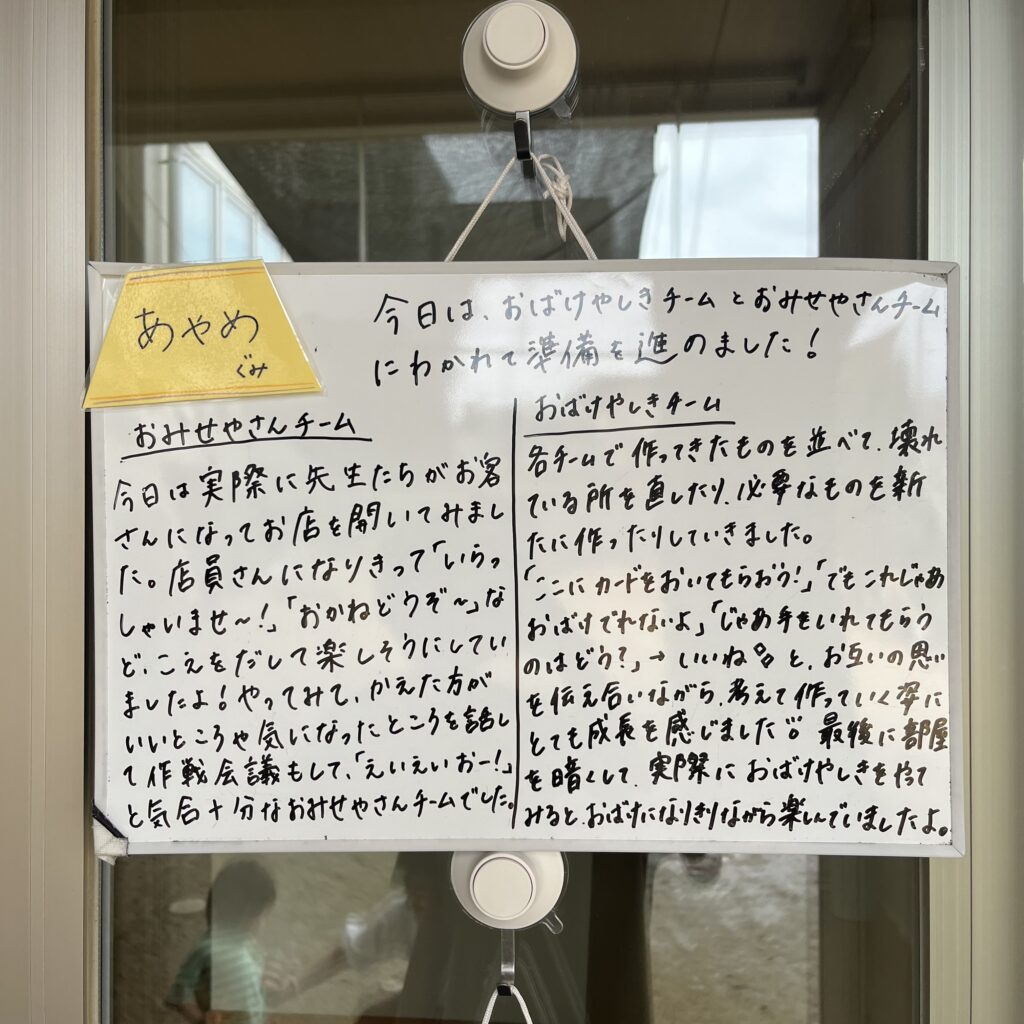 あやめ
ぐみ
今日は、おばけやしきチームとおみせやさんチーム
にわかれて準備を進めました！
おみせやさんチーム
今日は実際に先生たちがお客
さんになってお店を開いてみまし
た。店員さんになりきって「いらっ
しゃいませ～！」「おかねどうぞ～」な
ど、こえをだして楽しそうにしてい
ましたよ！やってみて、かえた方が
いいところや気になったところを話し
て作戦会議もして、「えいえいおー！」
と気合十分なおみせやさんチームでした。
おばけやしきチーム
各チームで作ってきたものを並べて、壊れ
ている所を直したり、必要なものを新
たに作ったりしていきました。
「ここにカードをおいてもらおう！」「でもこれじゃあ
おばけでれないよ」「じゃあ手をいれてもらう
のはどう？」→いいね と、お互いの思い
を伝え合いながら、考えて作っていく姿に
とても成長を感じました 最後に部屋
を暗くして、実際におばけやしきをやって
みると、おばけになりきりながら楽しんでいましたよ。